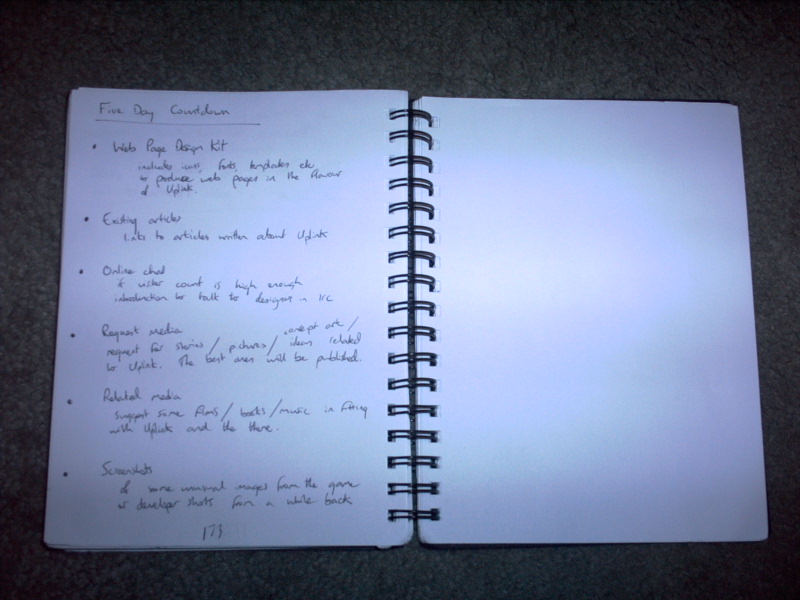 Five Day Countdown
• Web Page Design Kit
includes icons, fonts, templates etc
to produce web pages in the flavour
of Uplink.
• Existing articles
links to articles written about Uplink
• Online chat
if visitor count is high enough
introduction to talk to designers in IRC
• Request media
concept art/
request for stories / pictures / ideas related
to Uplink. The best ones will be published.
• Related media
suggest some films / books / music in fitting
with Uplink and the theme.
• Screenshots
of some unusual images from the game
or developer shots from a while back
173